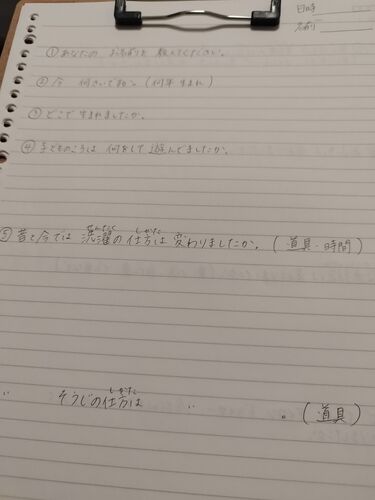 日時
名前
① あなたの お名前を 教えてください。
② 今 何さいですか。(何年 生まれ)
③ どこで 生まれましたか。
④ 子どものころは 何をして 遊んでましたか。
せんたく しかた
⑤ 昔と今では 洗濯の仕方は 変わりましたか。(道具・時間)
しかた
〃 そうじの仕方は 〃 。(道具)